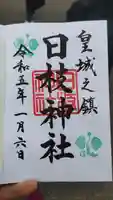 皇城之鎮
日枝神社
令和五年一月六日